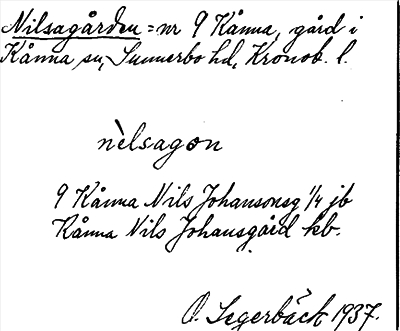 Nilsagården = nr 9 Kånna, gård i
Kånna sn, Sunnerbo hd, Kronob. l.
nìlsagon
9 Kånna Nils Johansonsg 1/4 jb
Kånna Nils Johansgård kb.
O. Segerbäck 1937.